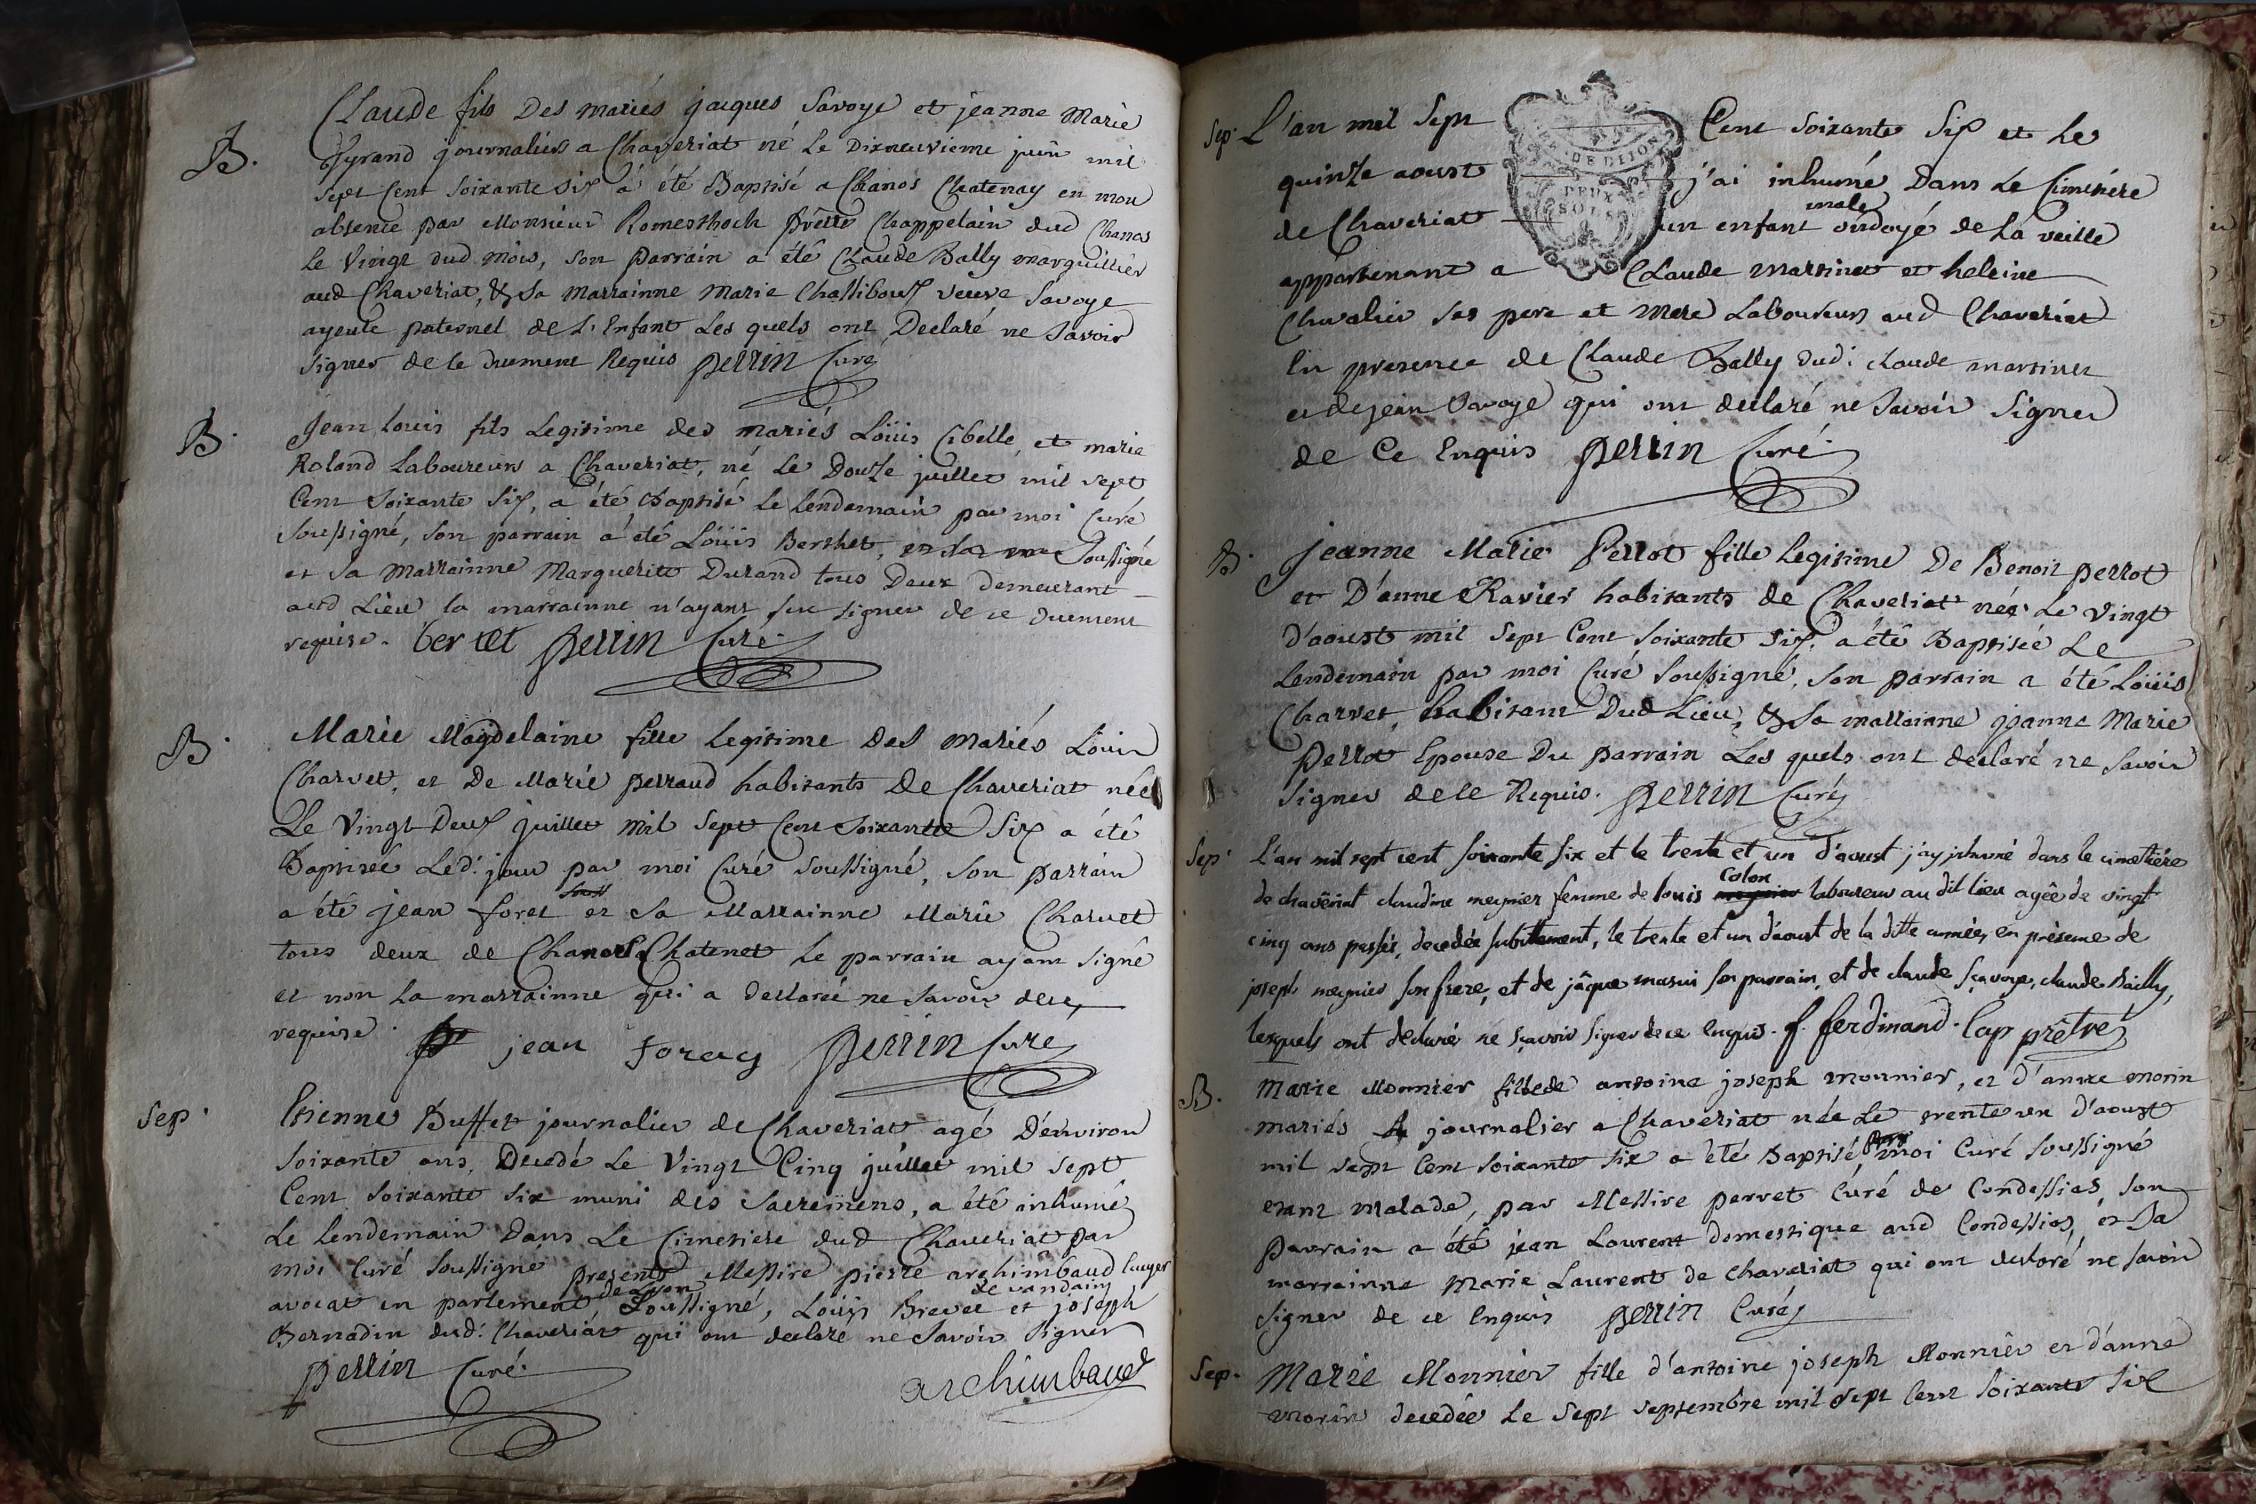 B.
Claude fils Des mariés jacques Savoye et jeanne Marie
Tyrand journaliers a Chaveriat né Le Dixneuvieme juin mil
sept Cent soixante six a été Baptisé a Chanos Chatenay en mon
absence par Monsieur Romesthoch prêtre Chappelain dud Chanos
Le Vingt dud mois, son parrain a été Claude Bally marguillier
aud Chaveriat, & sa marrainne Marie Chassibouf veuve Savoye
ayeule paternel de L'Enfant Les quels ont Declaré ne Savoir
signer de ce duement Requis perrin Curé
B.
Jean Louis fils Legitime des mariés Loüis Cibelle et marie
Roland Laboureurs a Chaveriat, né Le Douze juillet mil sept
Cent soixante six, a été Baptisé Le Lendemain par moi Curé
soussigné, son parrain a été Loüis Berthet, Soussigné
et sa marrainne Marguerite Durand tous Deux demeurant
aud Lieu la marrainne n'ayant su signer de ce duement
requise. bertet perrin Curé
B.
Marie Magdelaine fille Legitime des mariés Loüis
Charvet, et De Marie perraud habitants De Chaveriat née
Le Vingt Deux juillet mil sept Cent soixante six a été
Baptisée Led: jour par moi Curé soussigné, son parrain
a été jean foret et sa Marrainne Marie Charvet
tous deux de Chanos Chatenet le parrain ayant signé
et non La marrainne qui a declaré ne savoir dece,
requise. jean forey perrin Curé
Sep.
Etienne Buffet journalier de Chaveriat agé D'environ
soixante ans, Decedé Le Vingt Cinq juillet mil sept
Cent soixante six muni des Sacremens, a été inhumé
Le Lendemain Dans Le Cimetiere dud Chaveriat par
moi Curé soussigné presents Messire pierre archimbaud Ecuyer
avocat en parlement, soussigné, Loüis Brevet et joseph
Bernadin dud: Chaveriat qui ont declaré ne Savoir signer
perrin Curé. archimbaud
Sep.
L'an mil sept Cent soixante six et le
quinze aoust j'ai inhumé Dans Le Cimetiere
male
de Chaveriat un enfant ondoyé de La veille
appartenant a Claude martinet et heleine
Chevalier ses pere et mere Laboureurs aud Chaveriat
En presence de Claude Bally dud: claude martinet
et de jean Savoye qui ont declaré ne Savoir signer
de Ce Enquis perrin Curé.
DE DIJON
DEUX
SOLS
B.
jeanne Marie Perrot fille legitime De Benoit perrot
et D'anne Ravier habitants de Chaveriat née Le vingt
D'aoust mil sept Cent soixante six, a été Baptisée Le
Lendemain par moi Curé soussigné, son parrain a été Loüis
Charvet, habitant Dud Lieu, & sa marrainne jeanne Marie
perrot Epouse Du parrain Les quels ont declaré ne Savoir
signer dece Requis. perrin Curé
Sep.
L'an mil sept cent soixante six et le trente et un d'aoust j'ay jnhumé dans le cimetiére
Colon
de chavëriat claudine meynier femme de louis laboureur au dit lieu agêe de vingt
cinq ans passés, decedée subittement, le trente et un d'aoust de la ditte année, en présence de
joseph meynier son frere, et de jâque masui son parrain, et de claude sçavoye, claude Bailly,
lesquels ont declaré ne sçavoir signer de ce enquis. f. ferdinand. Cap prêtre
B.
Marie Monnier fille de antoine joseph monnier, et d'anne morin
mariés journalier a Chaveriat née Le trente un d'aoust
mil sept Cent soixante six a été Baptisé, moi Curé soussigné
etant malade, par Messire perret Curé de Condessias, son
parrain a été jean Lourent domestique aud Condessias, et sa
marrainne Marie Laurent de Chaveriat qui ont declaré ne savoir
signer de ce Enquis perrin Curé
Sep.
Marie Monnier fille d'antoine joseph Monnier et d'anne
morin decedée Le sept septembre mil sept Cent soixante six